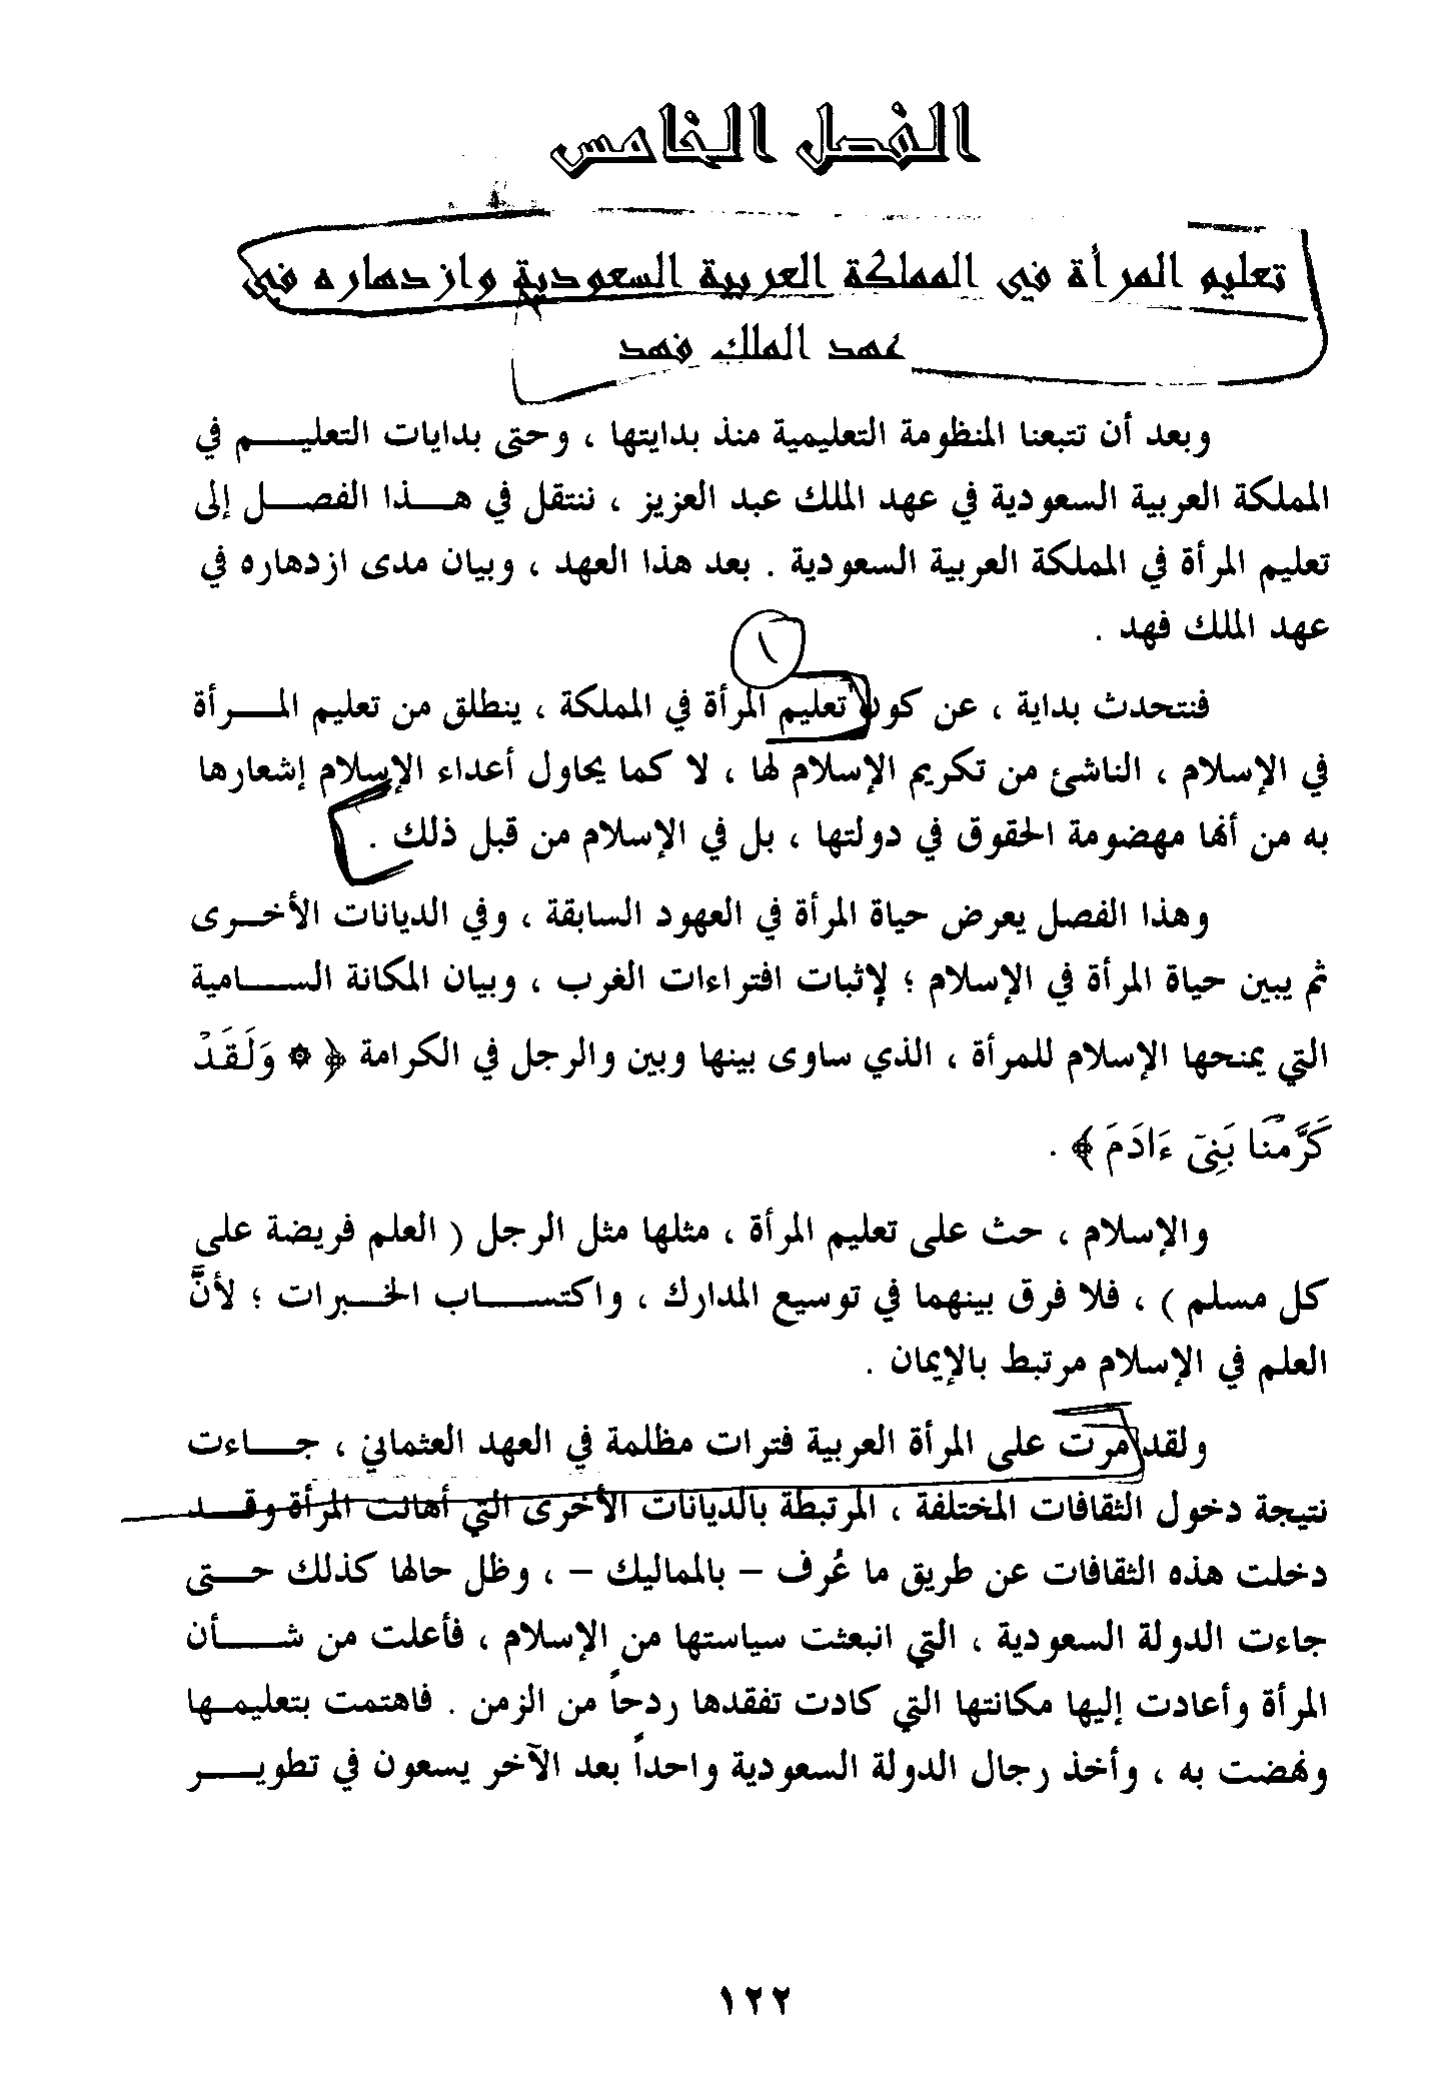 الفصل الخامس
تعليم المرأة في المملكة العربية السعودية وازدهاره في
عهد الملك فهد
وبعد أن تتبعنا المنظومة التعليمية منذ بدايتها ، وحتى بدايات التعليم في
المملكة العربية السعودية في عهد الملك عبد العزيز ، ننتقل في هذا الفصل إلى
تعليم المرأة في المملكة العربية السعودية . بعد هذا العهد ، وبيان مدى ازدهاره في
عهد الملك فهد .
١
فنتحدث بداية ، عن كون تعليم المرأة في المملكة ، ينطلق من تعليم المرأة
في الإسلام ، الناشئ من تكريم الإسلام لها ، لا كما يحاول أعداء الإسلام إشعارها
به من أنها مهضومة الحقوق في دولتها ، بل في الإسلام من قبل ذلك .
وهذا الفصل يعرض حياة المرأة في العهود السابقة ، وفي الديانات الأخرى
ثم يبين حياة المرأة في الإسلام ؛ لإثبات افتراءات الغرب ، وبيان المكانة السامية
التي يمنحها الإسلام للمرأة ، الذي ساوى بينها وبين والرجل في الكرامة ﴿ ۞ وَلَقَدْ
كَرَّمْنَا بَنِىٓ ءَادَمَ ﴾ .
والإسلام ، حث على تعليم المرأة ، مثلها مثل الرجل ( العلم فريضة على
كل مسلم ) ، فلا فرق بينهما في توسيع المدارك ، واكتساب الخبرات ؛ لأنَّ
العلم في الإسلام مرتبط بالإيمان .
ولقد مرت على المرأة العربية فترات مظلمة في العهد العثماني ، جاءت
نتيجة دخول الثقافات المختلفة ، المرتبطة بالديانات الأخرى التي أهانت المرأة وقد
دخلت هذه الثقافات عن طريق ما عُرف – بالمماليك – ، وظل حالها كذلك حتى
جاءت الدولة السعودية ، التي انبعثت سياستها من الإسلام ، فأعلت من شأن
المرأة وأعادت إليها مكانتها التي كادت تفقدها ردحاً من الزمن . فاهتمت بتعليمها
ونهضت به ، وأخذ رجال الدولة السعودية واحداً بعد الآخر يسعون في تطوير
١٢٢